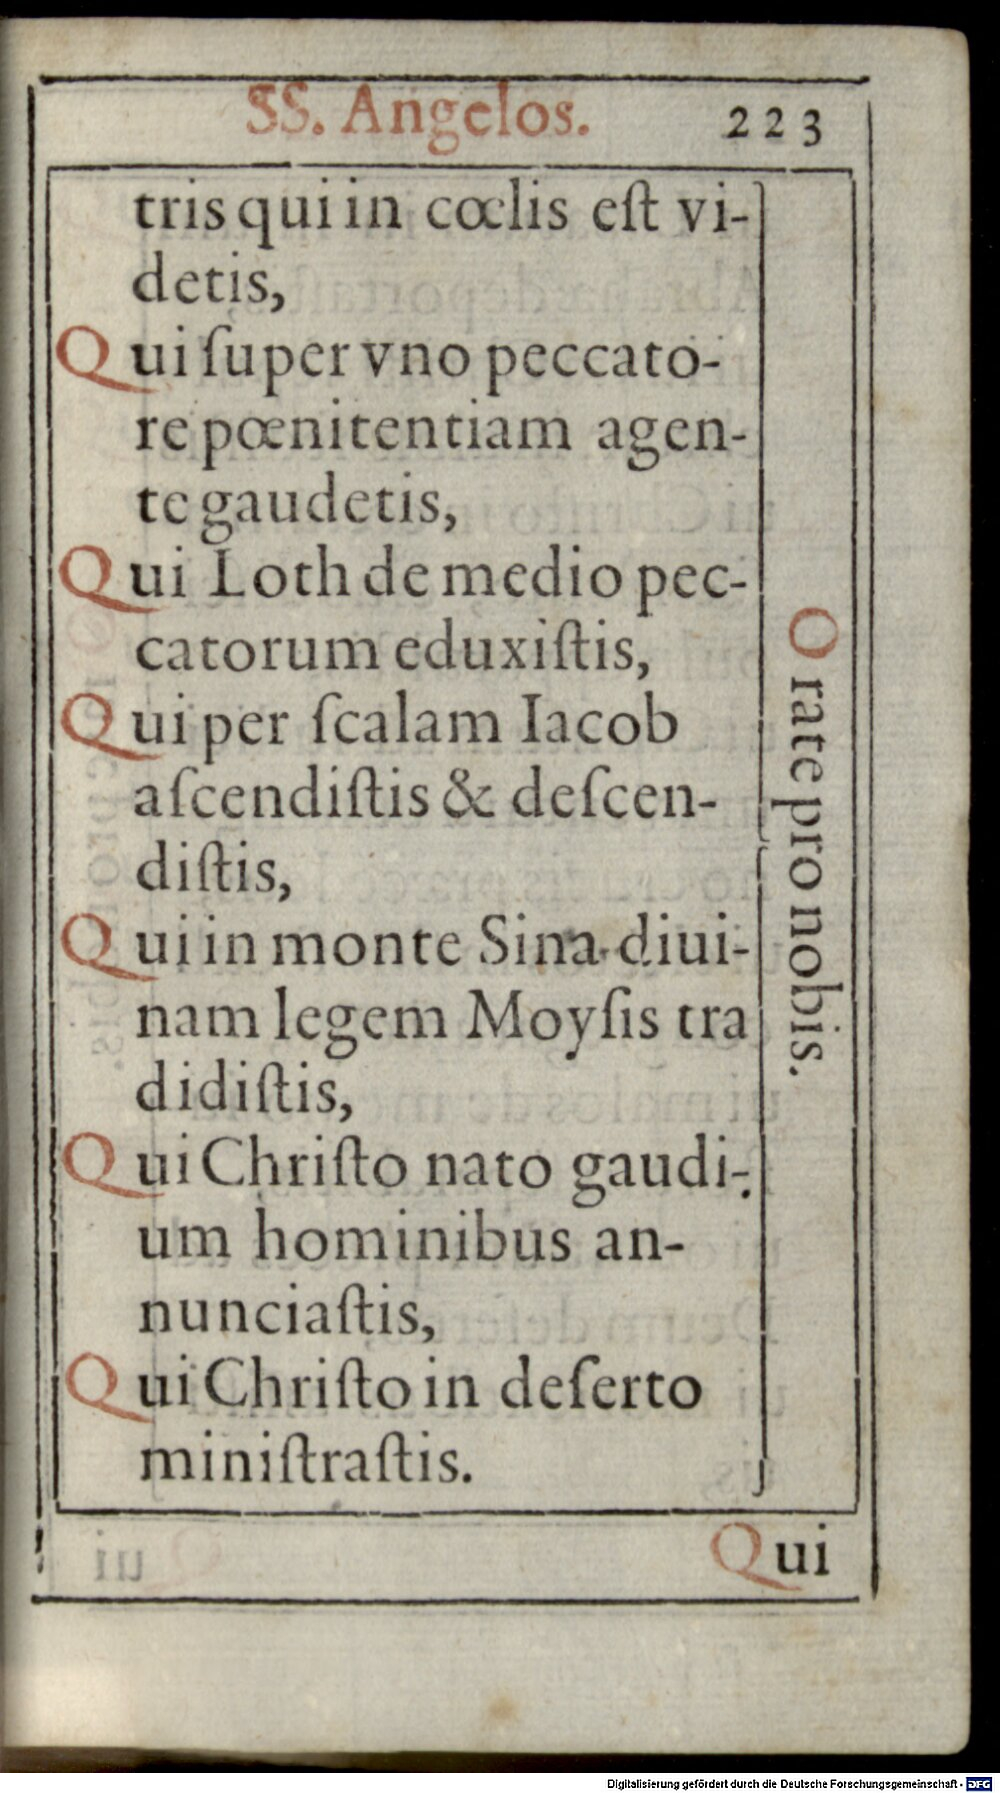 SS. Angelos. 223
tris qui in cœlis eſt vi-
detis,
Qui ſuper vno peccato-
re pœnitentiam agen-
te gaudetis,
Qui Loth de medio pec-
catorum eduxiſtis,
Qui per ſcalam Iacob
aſcendiſtis & deſcen-
diſtis,
Qui in monte Sina diui-
nam legem Moyſis tra
didiſtis,
Qui Chriſto nato gaudi-
um hominibus an-
nunciaſtis,
Qui Chriſto in deſerto
miniſtraſtis.
Orate pro nobis.
Qui
Digitalisierung gefördert durch die Deutsche Forschungsgemeinschaft - DFG